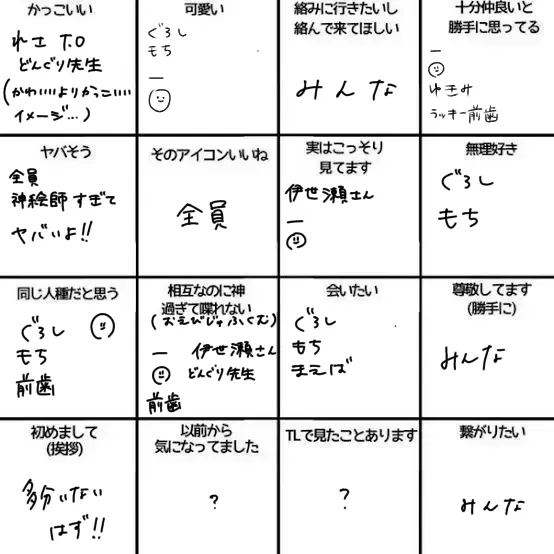 かっこいい
れさ T.O
どんぐり先生
(かわいいよりかっこいい
イメージ…)
可愛い
ぐろし
もち
一
絡みに行きたいし
絡んで来てほしい
みんな
十分仲良いと
勝手に思ってる
一
ゆきみ
ラッキー前歯
ヤバそう
全員
神絵師すぎて
ヤバいよ!!
そのアイコンいいね
全員
実はこっそり
見てます
伊世瀬さん
一
無理好き
ぐろし
もち
同じ人種だと思う
ぐろし
もち
前歯
相互なのに神
過ぎて喋れない
(おえびじゅふくむ)
一 伊世瀬さん
どんぐり先生
前歯
会いたい
ぐろし
もち
まえば
尊敬してます
(勝手に)
みんな
初めまして
(挨拶)
多分いない
はず!!
以前から
気になってました
?
TLで見たことあります
?
繋がりたい
みんな